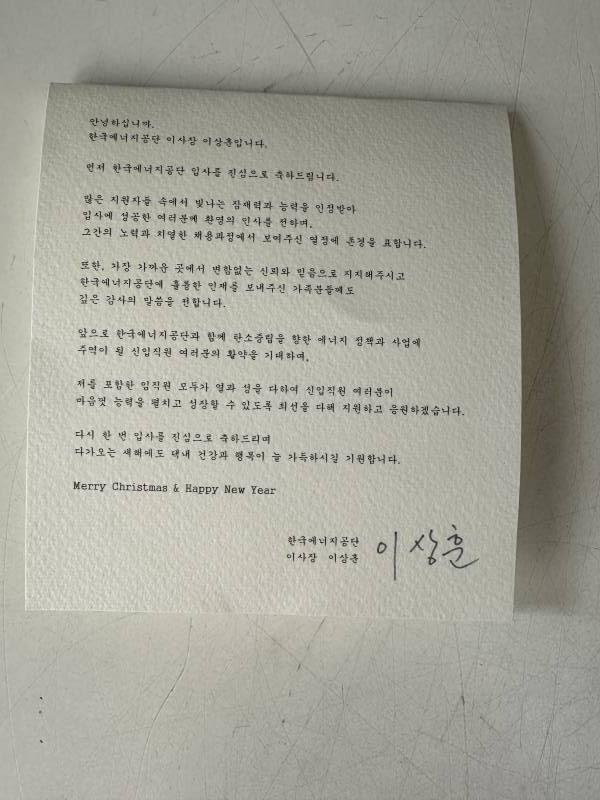 안녕하십니까.
한국에너지공단 이사장 이상훈입니다.
먼저 한국에너지공단 입사를 진심으로 축하드립니다.
많은 지원자들 속에서 빛나는 잠재력과 능력을 인정받아
입사에 성공한 여러분께 환영의 인사를 전하며,
그간의 노력과 치열한 채용과정에서 보여주신 열정에 존경을 표합니다.
또한, 가장 가까운 곳에서 변함없는 신뢰와 믿음으로 지지해주시고
한국에너지공단에 훌륭한 인재를 보내주신 가족분들께도
깊은 감사의 말씀을 전합니다.
앞으로 한국에너지공단과 함께 탄소중립을 향한 에너지 정책과 사업에
주역이 될 신입직원 여러분의 활약을 기대하며,
저를 포함한 임직원 모두가 열과 성을 다하여 신입직원 여러분이
마음껏 능력을 펼치고 성장할 수 있도록 최선을 다해 지원하고 응원하겠습니다.
다시 한 번 입사를 진심으로 축하드리며
다가오는 새해에도 댁내 건강과 행복이 늘 가득하시길 기원합니다.
Merry Christmas & Happy New Year
한국에너지공단
이사장 이상훈 이상훈